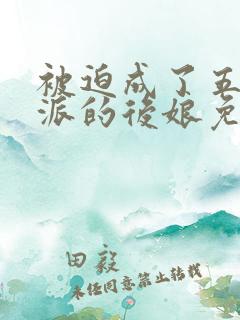 被迫成了五
派的後娘免
田毅
未经同意禁止转载